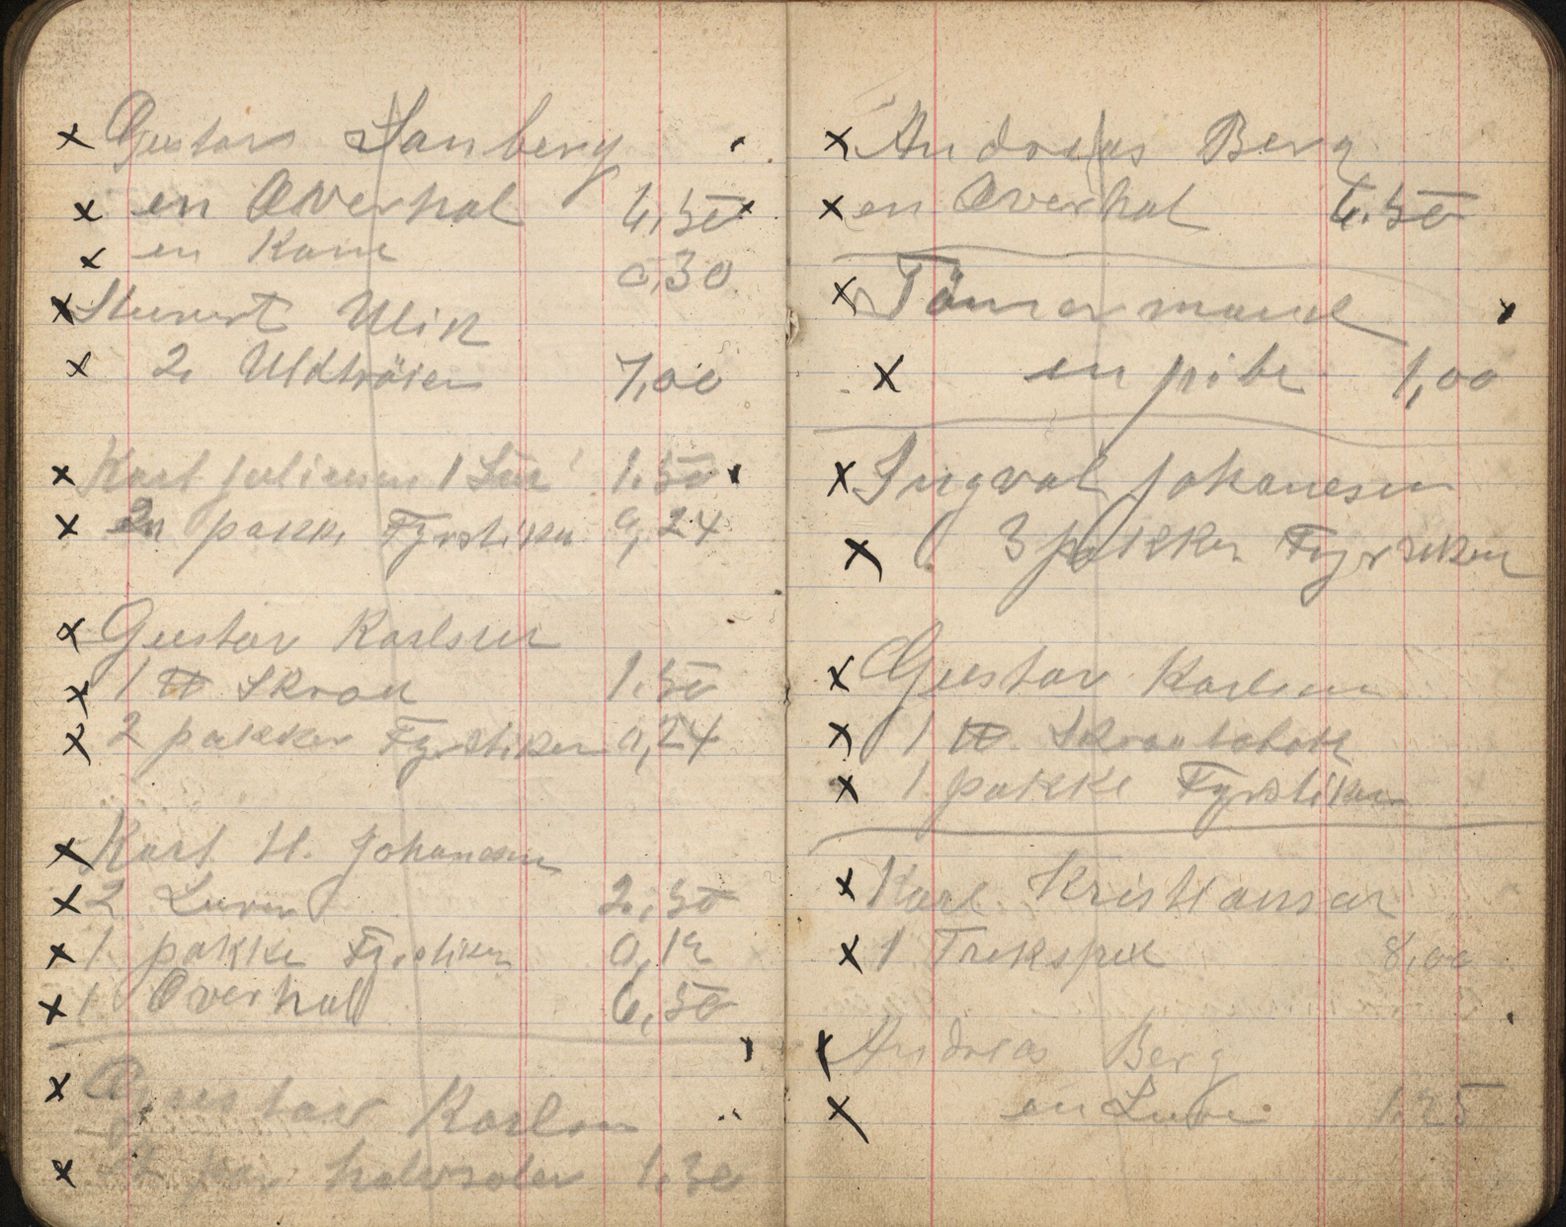 x Gustav Sanberg
x en Overhal 6,50 x
x en Kam 0,30
x Stuvert Ulik
x 2 Uldtröier 7,00
x Karl Juliusen 1 Lue 1,50
x 2 pakke Fyrstiker 0,24
x Gustav Karlsen
x 1 tt Skraa 1,50
x 2 pakker Fyrstiker 0,24
x Karl H. Johansen
x 2 Luver 2,50
x 1 pakke Fyrstiker 0,12
x 1 Overhal 6,50
x Gustav Karlsen
x par halvsoler 1,30
x Andreas Berg
x en Overhal 6.50
x Tömermand
x en pibe 1,00
x Ingval Johanesen
x 3 pakker Fyrstiker
x Gustav Karlsen
x 1 tt Skraatobak
x 1 pakke Fyrstiker
x Karl Kristiansen
x 1 Trekspel 8,00
x Andreas Berg
x en Luve 1.25